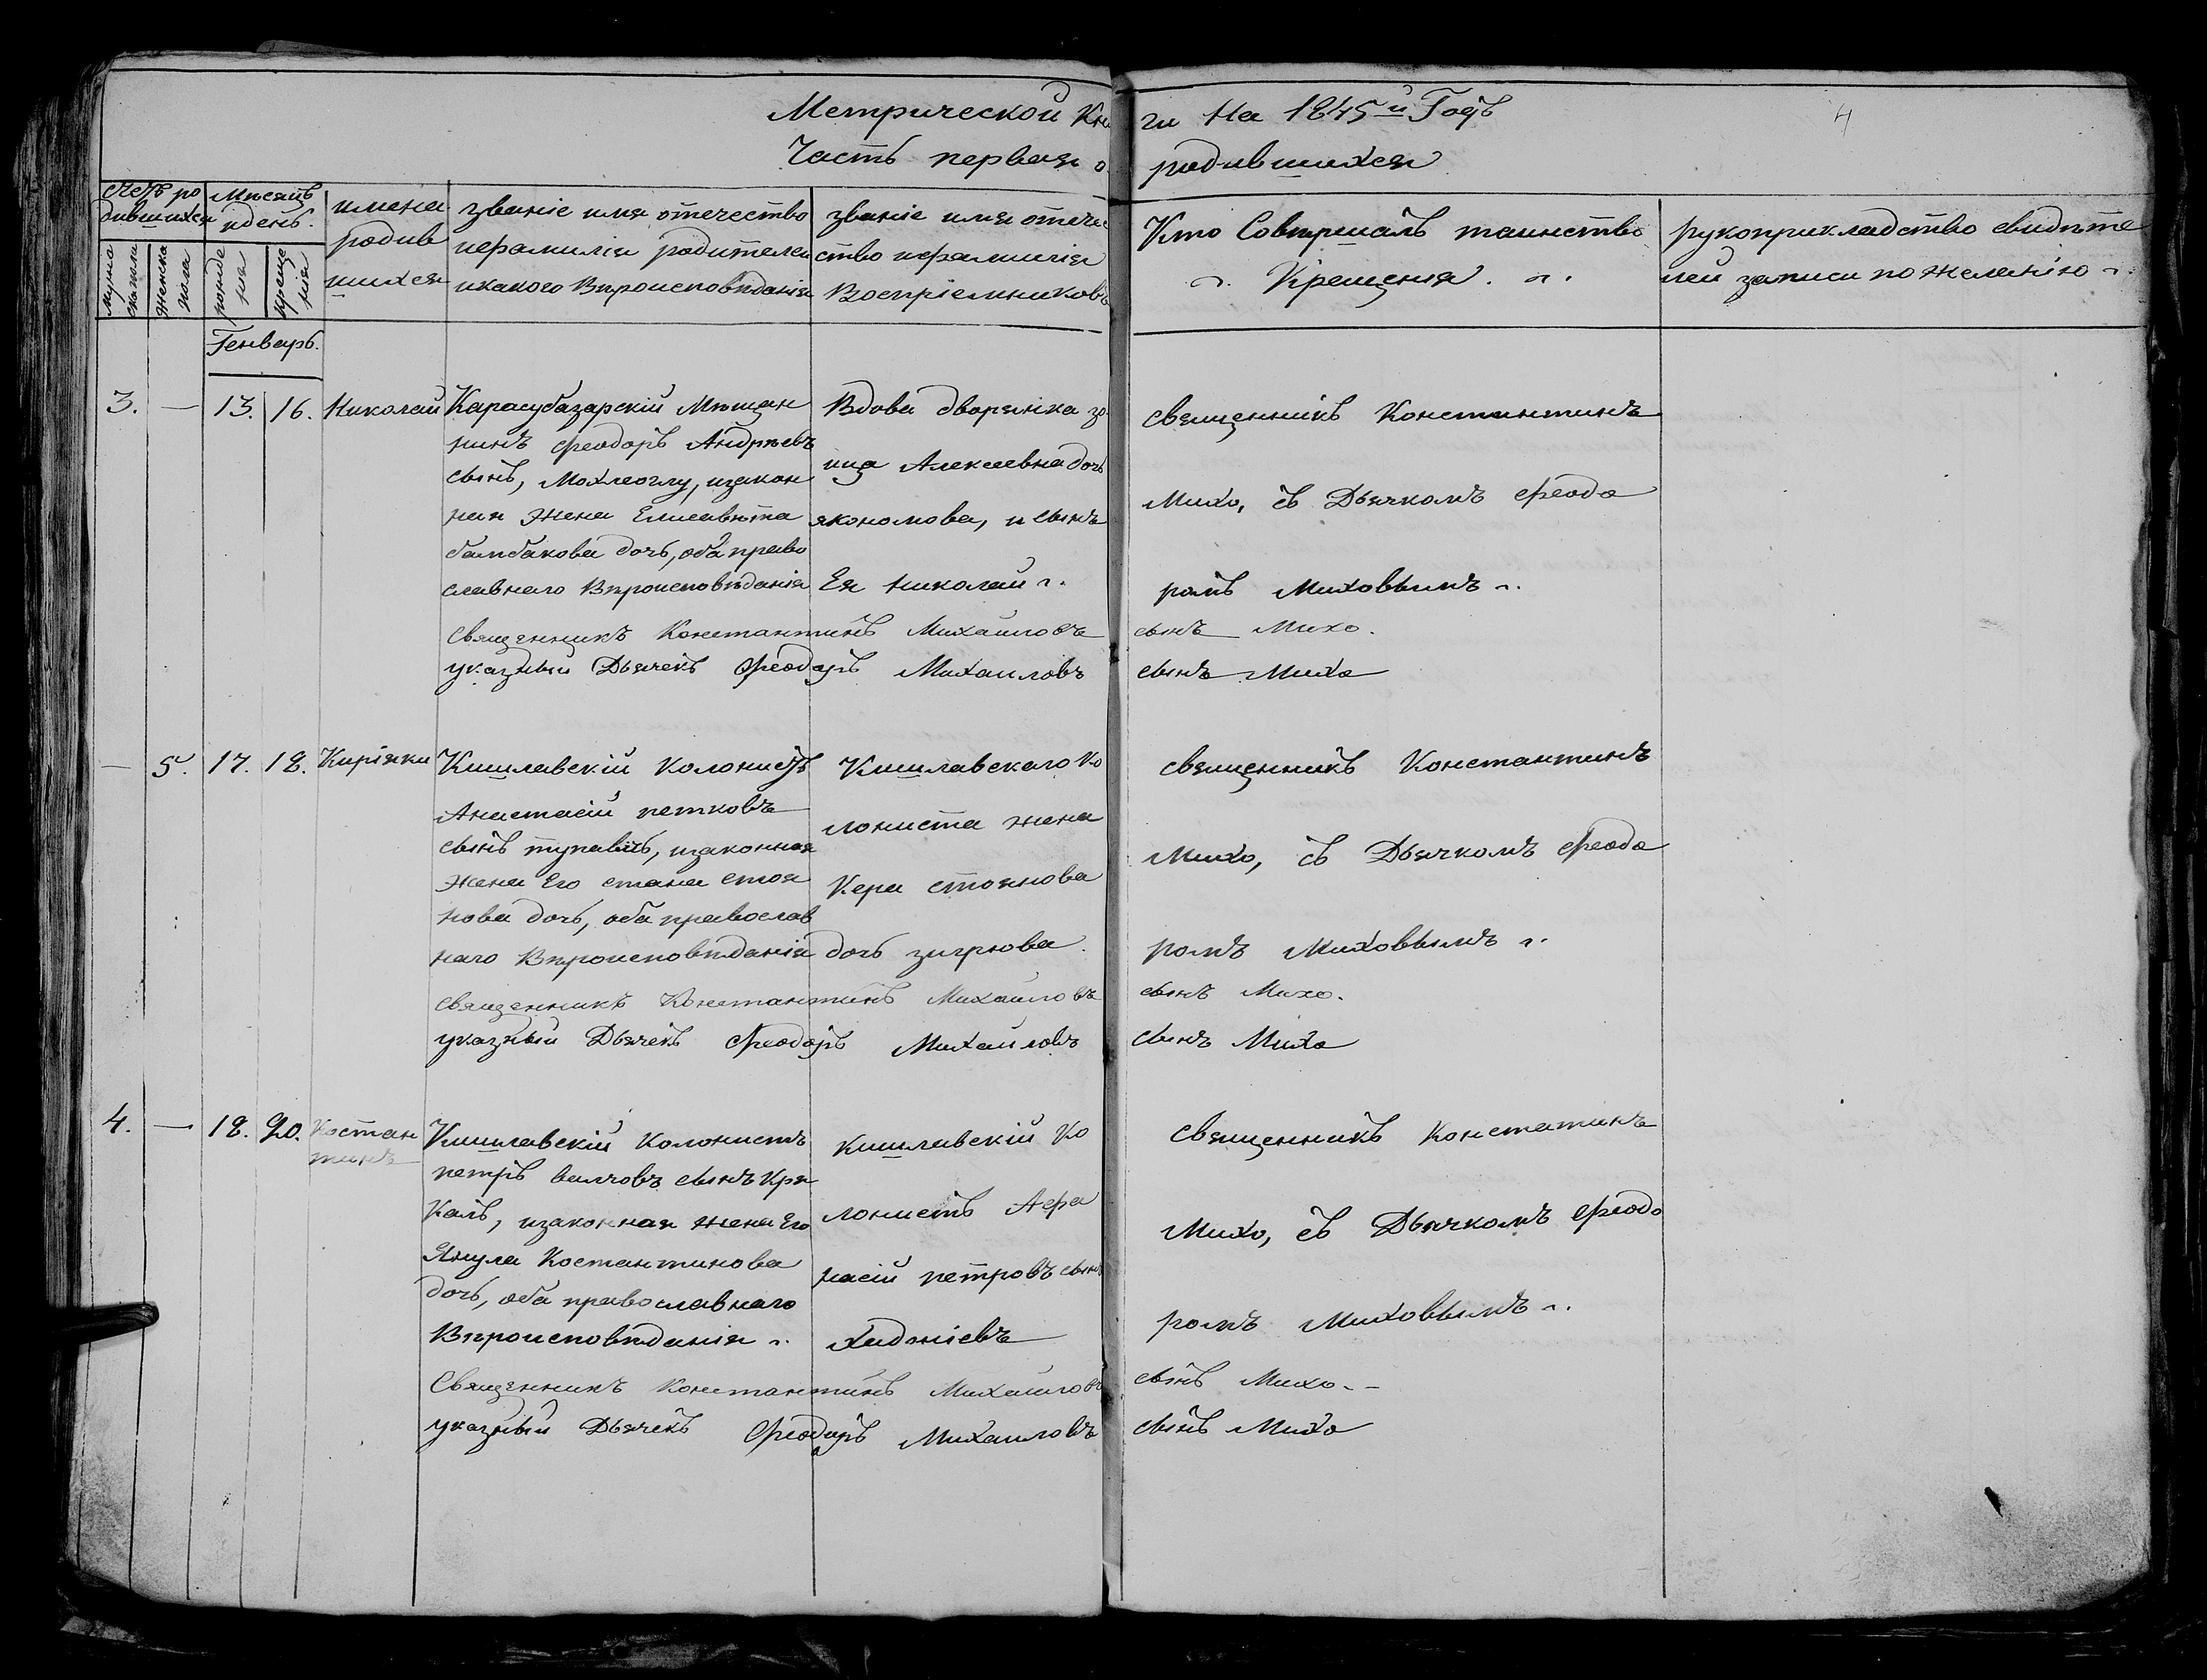 Метрической Книги на 1845й Годъ
4
Часть первая о родившихся
Счетъ ро
дившихся
мужеска
пола
женска
пола
Мѣсяцъ
и день.
рожде
нія
креще
нія
имена
родив
шихся
званіе имя отечество
и фамилія родителей
и какого Вѣроисповѣданія
званіе имя отече
ство и фамилія
Воспріемниковъ
Кто Совершалъ таинство
Крещенія
рукоприкладство свидѣте
лей записи по желанію
Генварь.
3. — 13. 16. Николай
Карасубазарскій Мѣщан
нинъ Феодоръ Андрѣевъ
сынъ, , и закон
ная Жена Елисавѣта
бамбакова дочь, оба право
славнаго Вѣроисповѣданія
Вдова дворянка зо
ица Алексеевна дочь
якономова, и сынъ
Ея Николай
священникъ Константинъ
Михо, съ Дьячкомъ Феодо
ромъ Миховымъ
священникъ Константинъ Михайловъ сынъ Михо.
указный Дьячекъ Феодоръ Михаиловъ сынъ Михо
— 5. 17. 18. Киріяки
Кишлавскій Колонистъ
Анастасій петковъ
сынъ , и законная
Жена Его стана стоя
нова дочь, оба православ
наго Вѣроисповѣданія
Кишлавскаго Ко
лониста жена
Кера стоянова
дочь згурова.
священникъ Константинъ
Михо, съ Дьячкомъ Феодо
ромъ Миховымъ
священникъ Константинъ Михайловъ сынъ Михо.
указный Дьячекъ Феодоръ Михаиловъ сынъ Михо
4. — 18. 20. Костан
тинъ
Кишлавскій Колонистъ
петръ валчовъ сынъ Кря
Калъ, и законная жена Его
Янула Костантинова
дочь, оба православнаго
Вѣроисповѣданія
Кишлавскій Ко
лонистъ Афа
насій петровъ сынъ
Хаджіевъ
священникъ Констатинъ
Михо, съ Дьячкомъ Феодо
ромъ Миховымъ
Священникъ Константинъ Михайловъ сынъ Михо.
указный Дьячекъ Феодоръ Михаиловъ сынъ Михо